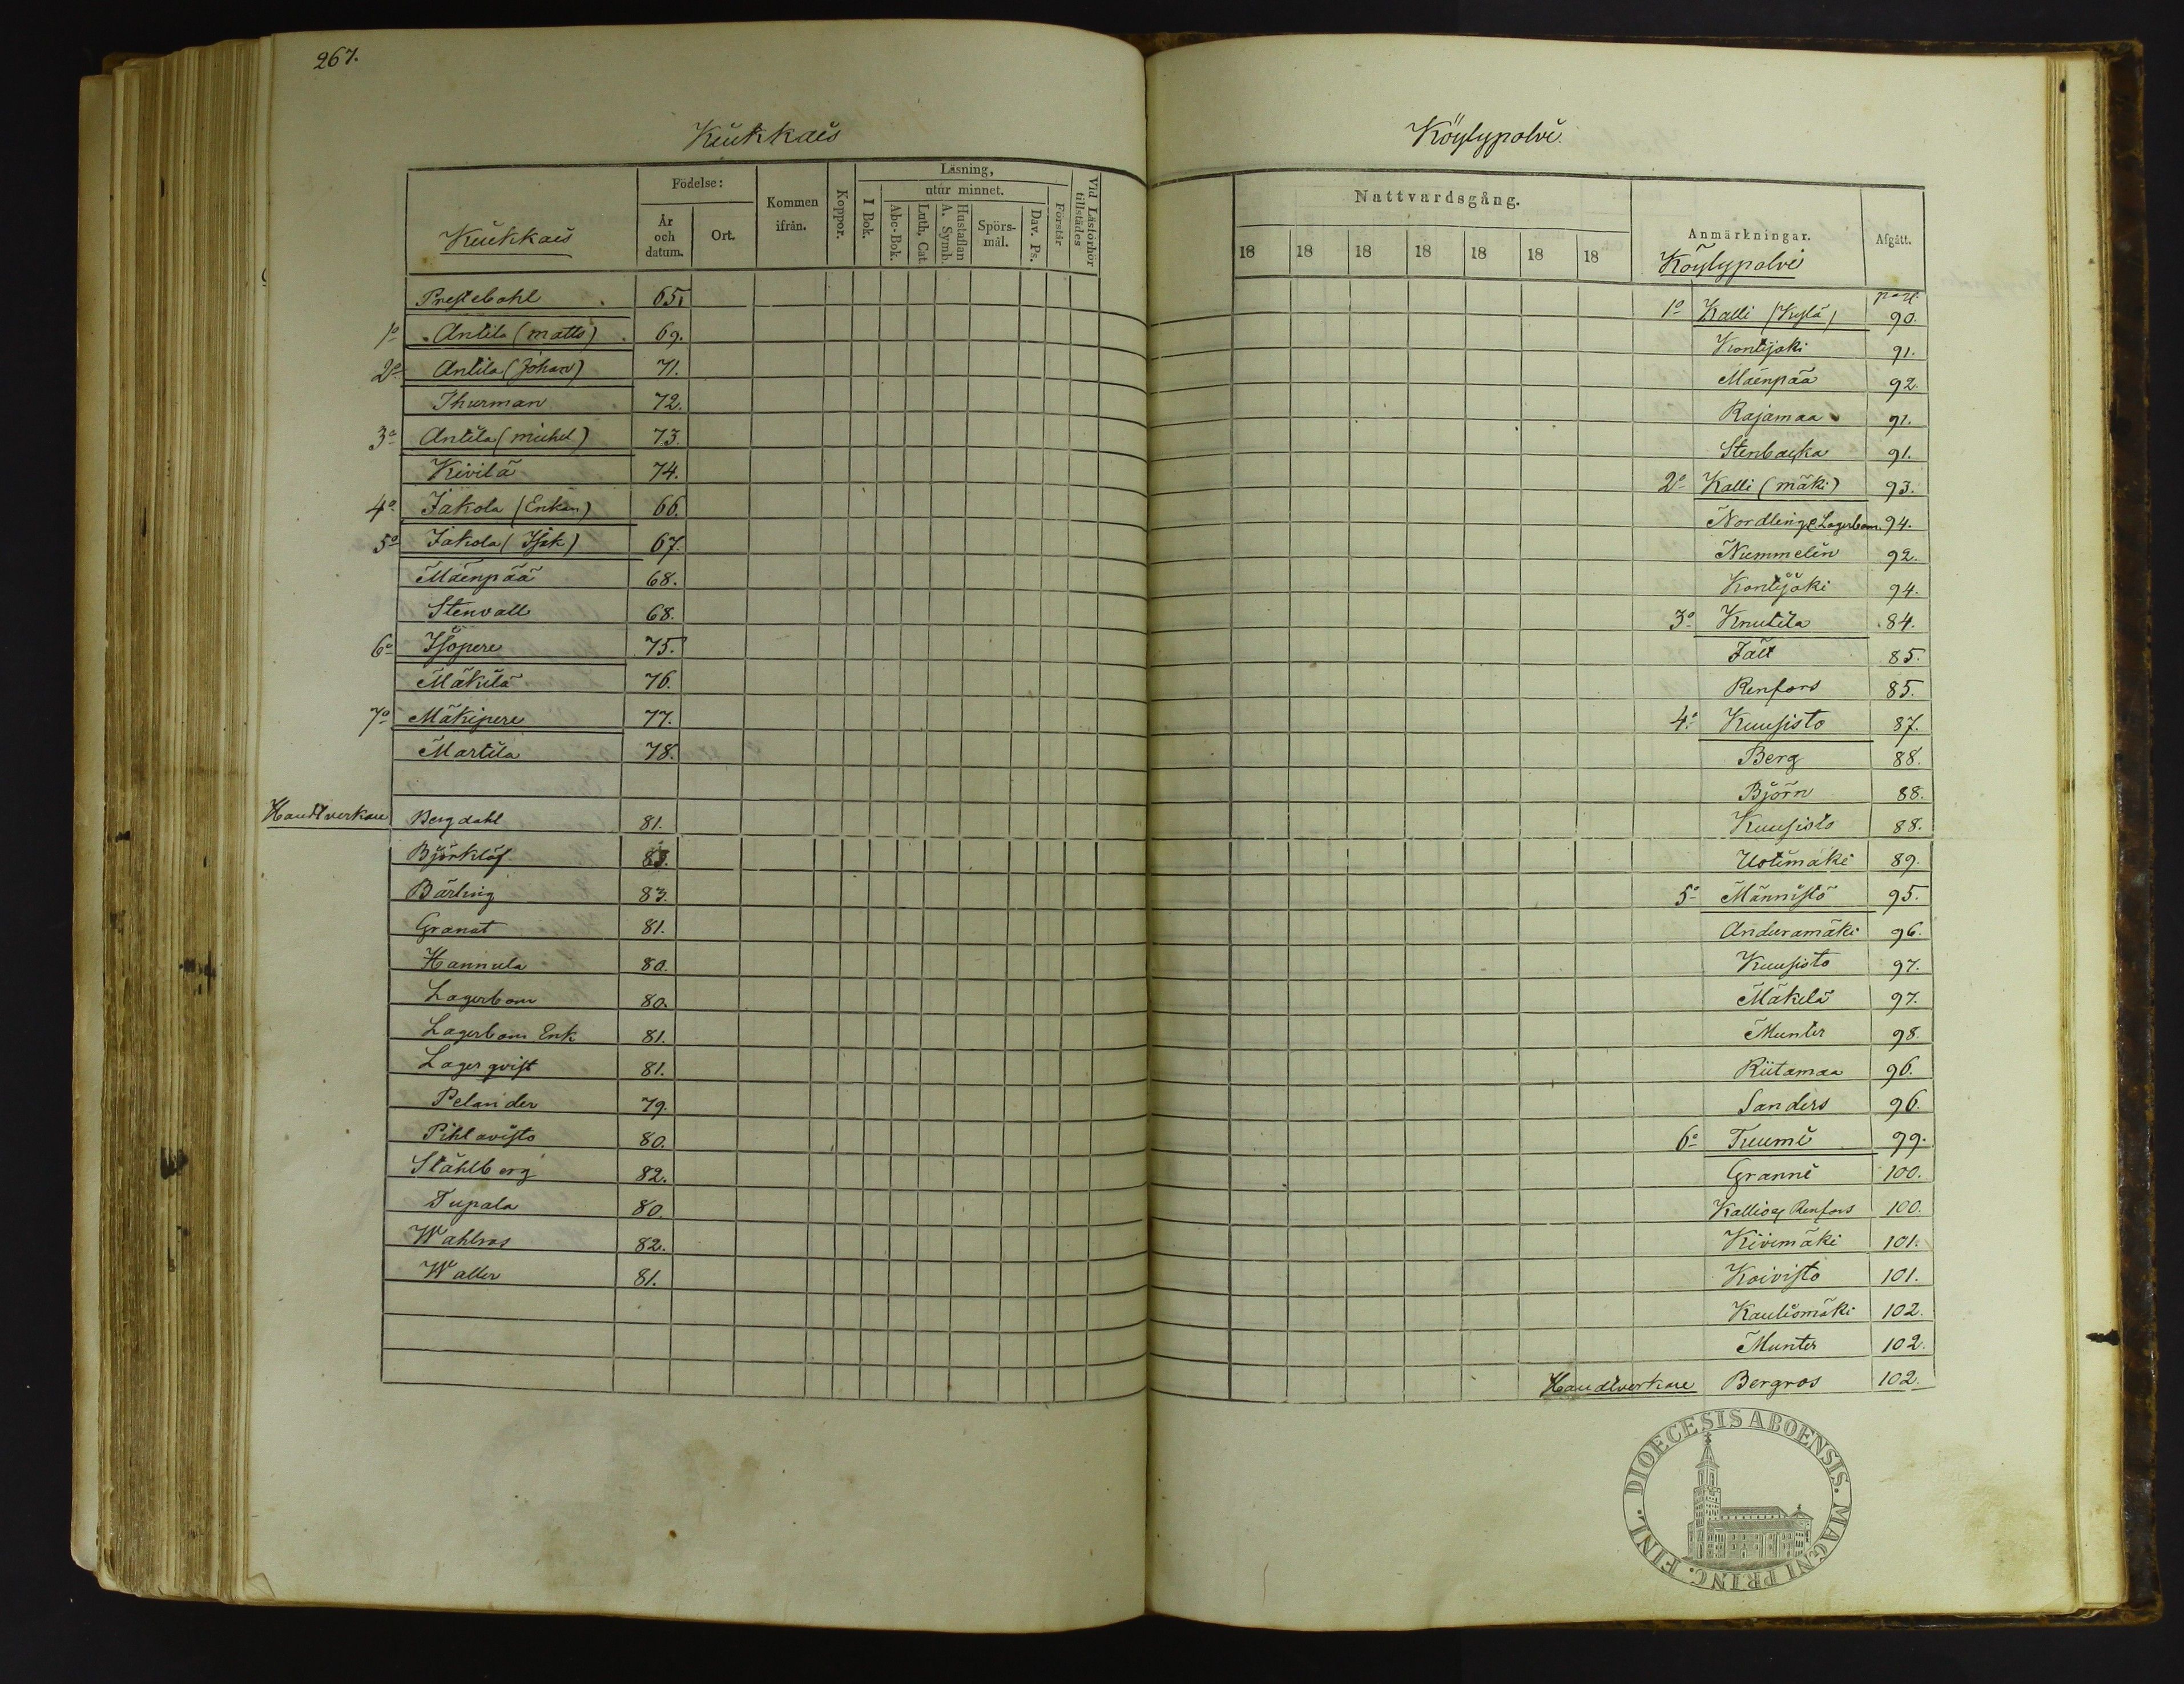 267.
Kiukkais
Födelse:
Kommen ifrån.
Koppor.
Läsning,
utur minnet.
År och datum.
Ort.
I Bok.
Abc-Bok.
Luth. Cat.
Hustaflan A. Symb.
Spörs-mål.
Dav. Ps.
Förstår
Vid Läsförhör tillstädes
Kiukkais
Prestebohl 65.
1º Antila (Matts) 69.
2º Antila (Johan) 71.
Thurman 72.
3º Antila (Michel) 73.
Kivilä 74.
4º Jakola (Enkan) 66.
5º Jakola (Isak) 67.
Mäenpää 68.
Stenvall 68.
6º Isopere 75.
Mäkilä 76.
7º Mäkipere 77.
Martila 78.
Handtverkare Bergdahl 81.
Björklöf 83.
Bärling 83.
Granat 81.
Hannula 80.
Lagerbom 80.
Lagerbom Enk 81.
Lagerqvist 81.
Pelander 79.
Pihlavisto 80.
Ståhlberg 82.
Tupala 80.
Wahlros 82.
Waller 81.
Köylypolvi.
Nattvardsgång.
Anmärkningar.
Afgått.
18 18 18 18 18 18 18
Köylypolvi
pag.
1º Kalli (Kylä) 90.
Kontijoki 91.
Mäenpää 92.
Rajamaa 91.
Stenbacka 91.
2º Kalli (mäki) 93.
Nordling & Lagerbom 94.
Nummelin 92.
Kontijoki 94.
3º Knutila 84.
Fält 85.
Renfors 85.
4º Kuusisto 87.
Berg 88.
Björn 88.
Kuusisto 88.
Uotimäki 89.
5º Männistö 95.
Anduramäki 96.
Kuusisto 97.
Mäkilä 97.
Munter 98.
Riitamaa 96.
Sanders 96.
6º Tuumi 99.
Granni 100.
Kallio & Renfors 100.
Kivimäki 101.
Koivisto 101.
Kauliomäki 102.
Munter 102.
Handtverkare Bergros 102.
DIOECESIS ABOENSIS. MAGNI PRINC. FINL.